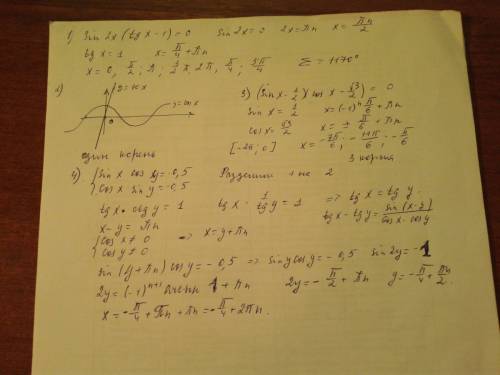 1) Sin 2x (tg x - 1) = 0 Sin 2x = 0 2x = πn x = πn/2
tg x = 1 x = π/4 + πn
x = 0, π/2, π, 2π, π/4, 5π/4 Σ = 1170°
2) y = cos x
0
один корень
3) (sin x - 1/2)(cos x - √3/2) = 0
sin x = 1/2 x = (-1)ⁿ π/6 + πn
cos x = √3/2 x = ± π/6 + πn
[-2π; 0] x = -7π/6; -11π/6; -π/6
3 корня
4) { sin x cos y = -0,5 Разделим 1 на 2
{ cos x sin y = -0,5
tg x • ctg y = 1 tg x · 1/tg y = 1 => tg x = tg y
x - y = πn tg x - tg y = sin(x-y)/cos x · cos y
{ cos x ≠ 0 => x = y + πn
{ cos y ≠ 0
sin (y + πn) cos y = -0,5 => sin y cos y = -0,5 sin 2y = -1
2y = (-1)ⁿ⁺¹ 1 + πn 2y = -π/2 + πn y = -π/4 + πn/2
x = -π/4 + πn + πn = -π/4 + 2πn.